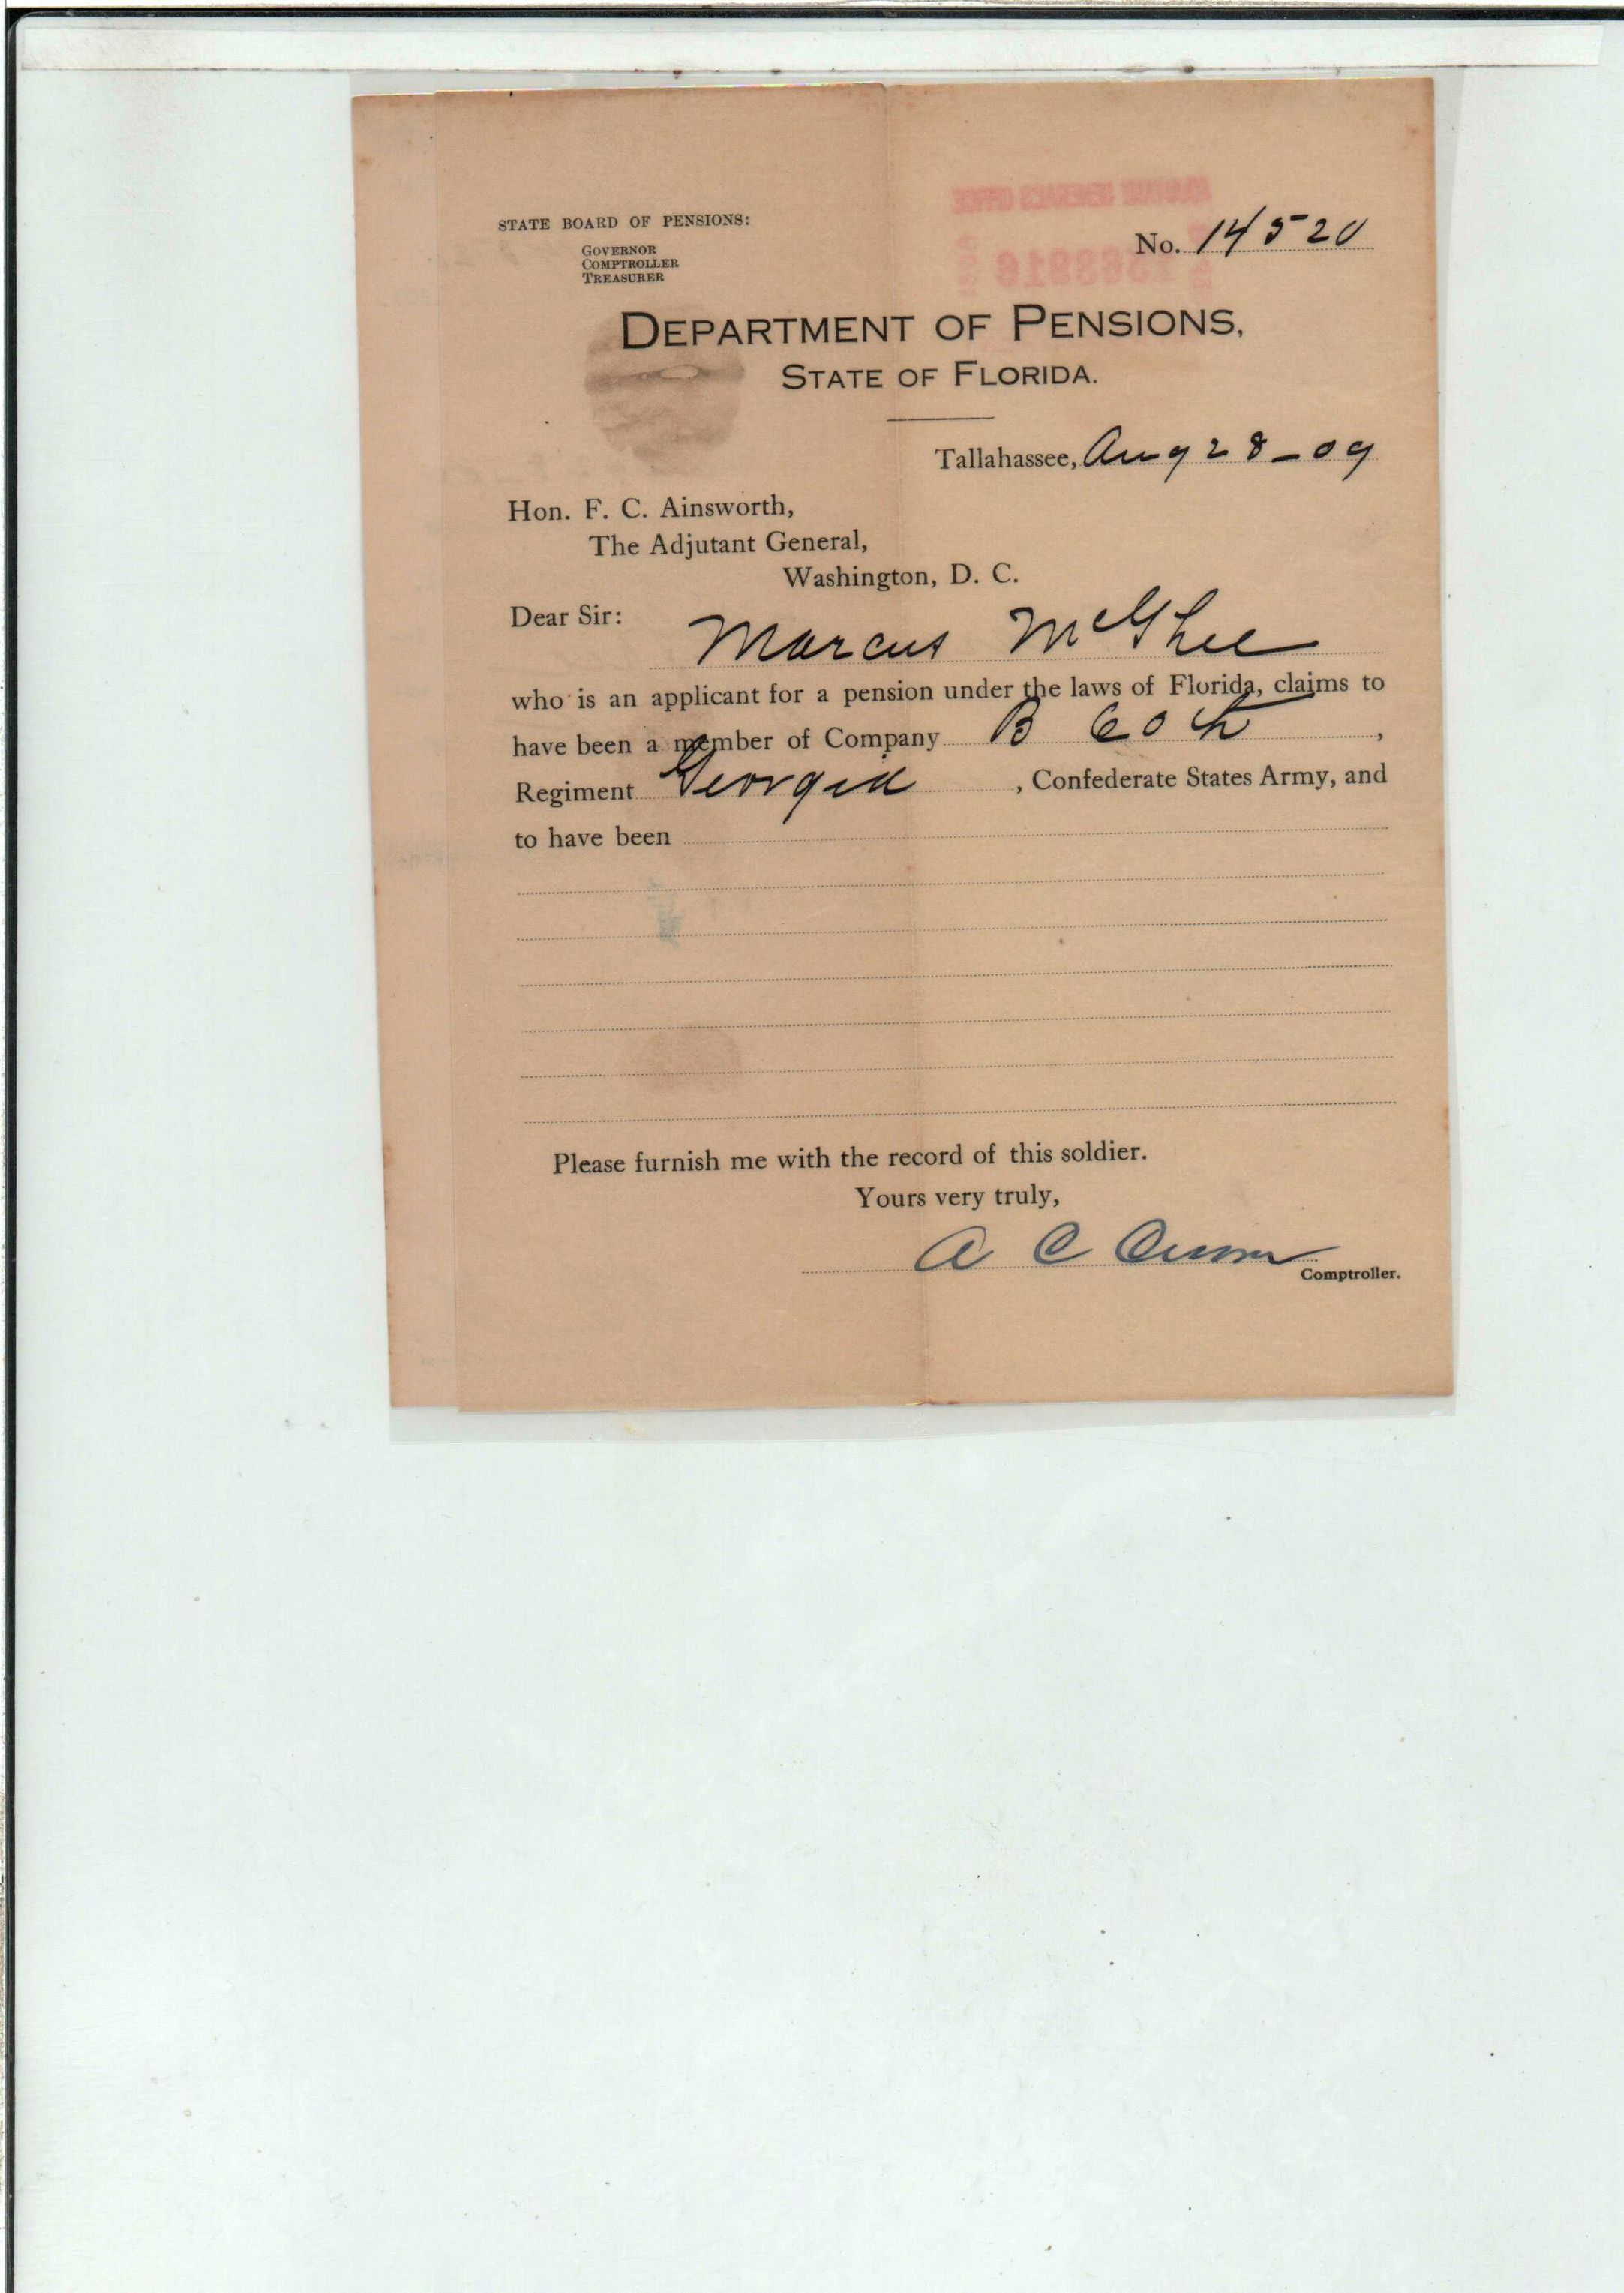 STATE BOARD OF PENSIONS:
GOVERNOR
COMPTROLLER
TREASURER
No. 14520
DEPARTMENT OF PENSIONS,
STATE OF FLORIDA.
Tallahassee, Aug 28-09
Hon. F. C. Ainsworth,
The Adjutant General,
Washington, D. C.
Dear Sir:
Marcus McGhee
who is an applicant for a pension under the laws of Florida, claims to
have been a member of Company B 60th,
Regiment Georgia, Confederate States Army, and
to have been
Please furnish me with the record of this soldier.
Yours very truly,
A C Croom
Comptroller.